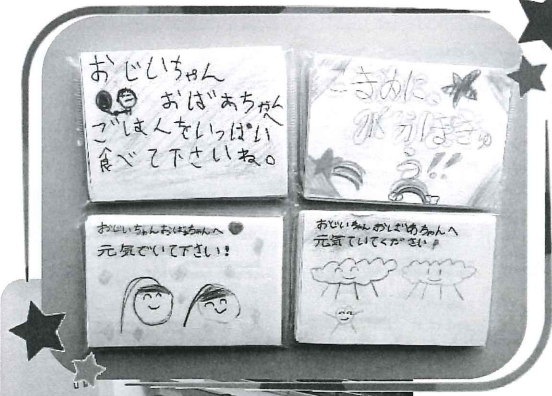 おじいちゃん
おばあちゃんへ
ごはんをいっぱい
食べて下さいね。
こまめに、
水分ほきゅ
う!!
おじいちゃんおばあちゃんへ
元気でいて下さい!
おじいちゃんおばあちゃんへ
元気でいてください